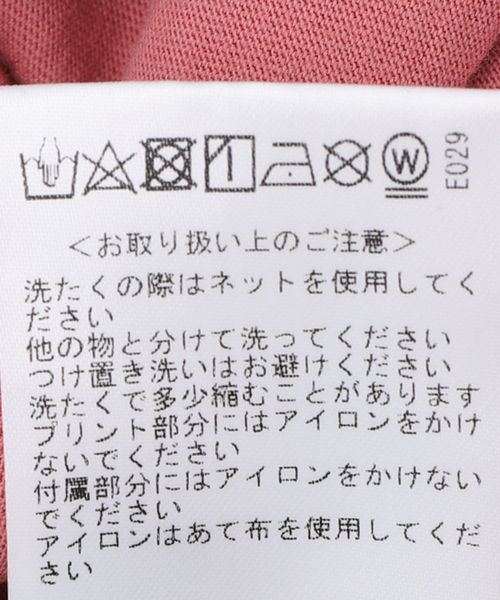 W
E029
＜お取り扱い上のご注意＞
洗たくの際はネットを使用してく
ださい
他の物と分けて洗ってください
つけ置き洗いはお避けください
洗たくで多少縮むことがあります
プリント部分にはアイロンをかけ
ないでください
付属部分にはアイロンをかけない
でください
アイロンはあて布を使用してくだ
さい